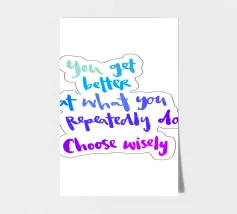 You get
better
at what you
Repeatedly do
Choose wisely